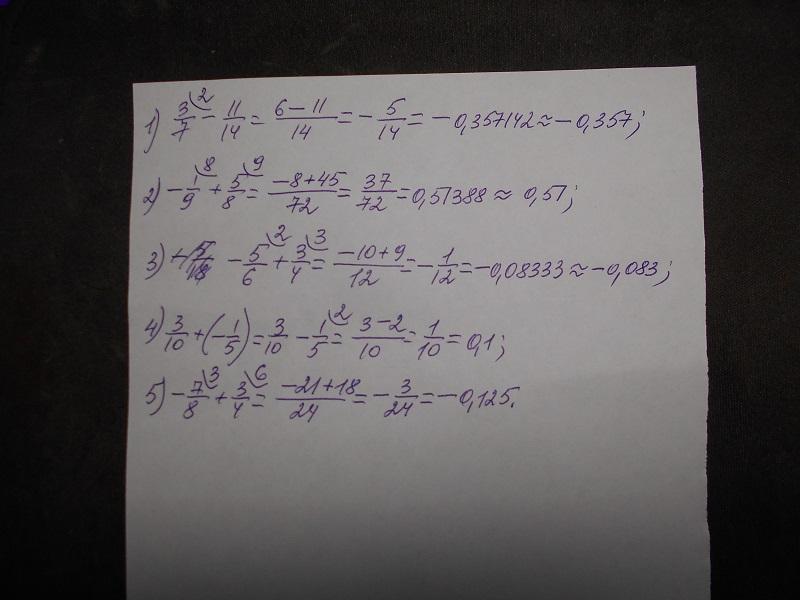 1) 3/7 ⁽² - 11/14 = (6-11)/14 = -5/14 = -0,357142 ≈ -0,357;
2) -1/9 ⁽⁸ + 5/8 ⁽⁹ = (-8+45)/72 = 37/72 = 0,51388 ≈ 0,51;
3) -5/6 ⁽² + 3/4 ⁽³ = (-10+9)/12 = -1/12 = -0,08333 ≈ -0,083;
4) 3/10 + (-1/5) = 3/10 - 1/5 ⁽² = (3-2)/10 = 1/10 = 0,1;
5) -7/8 ⁽³ + 3/4 ⁽⁶ = (-21+18)/24 = -3/24 = -0,125.